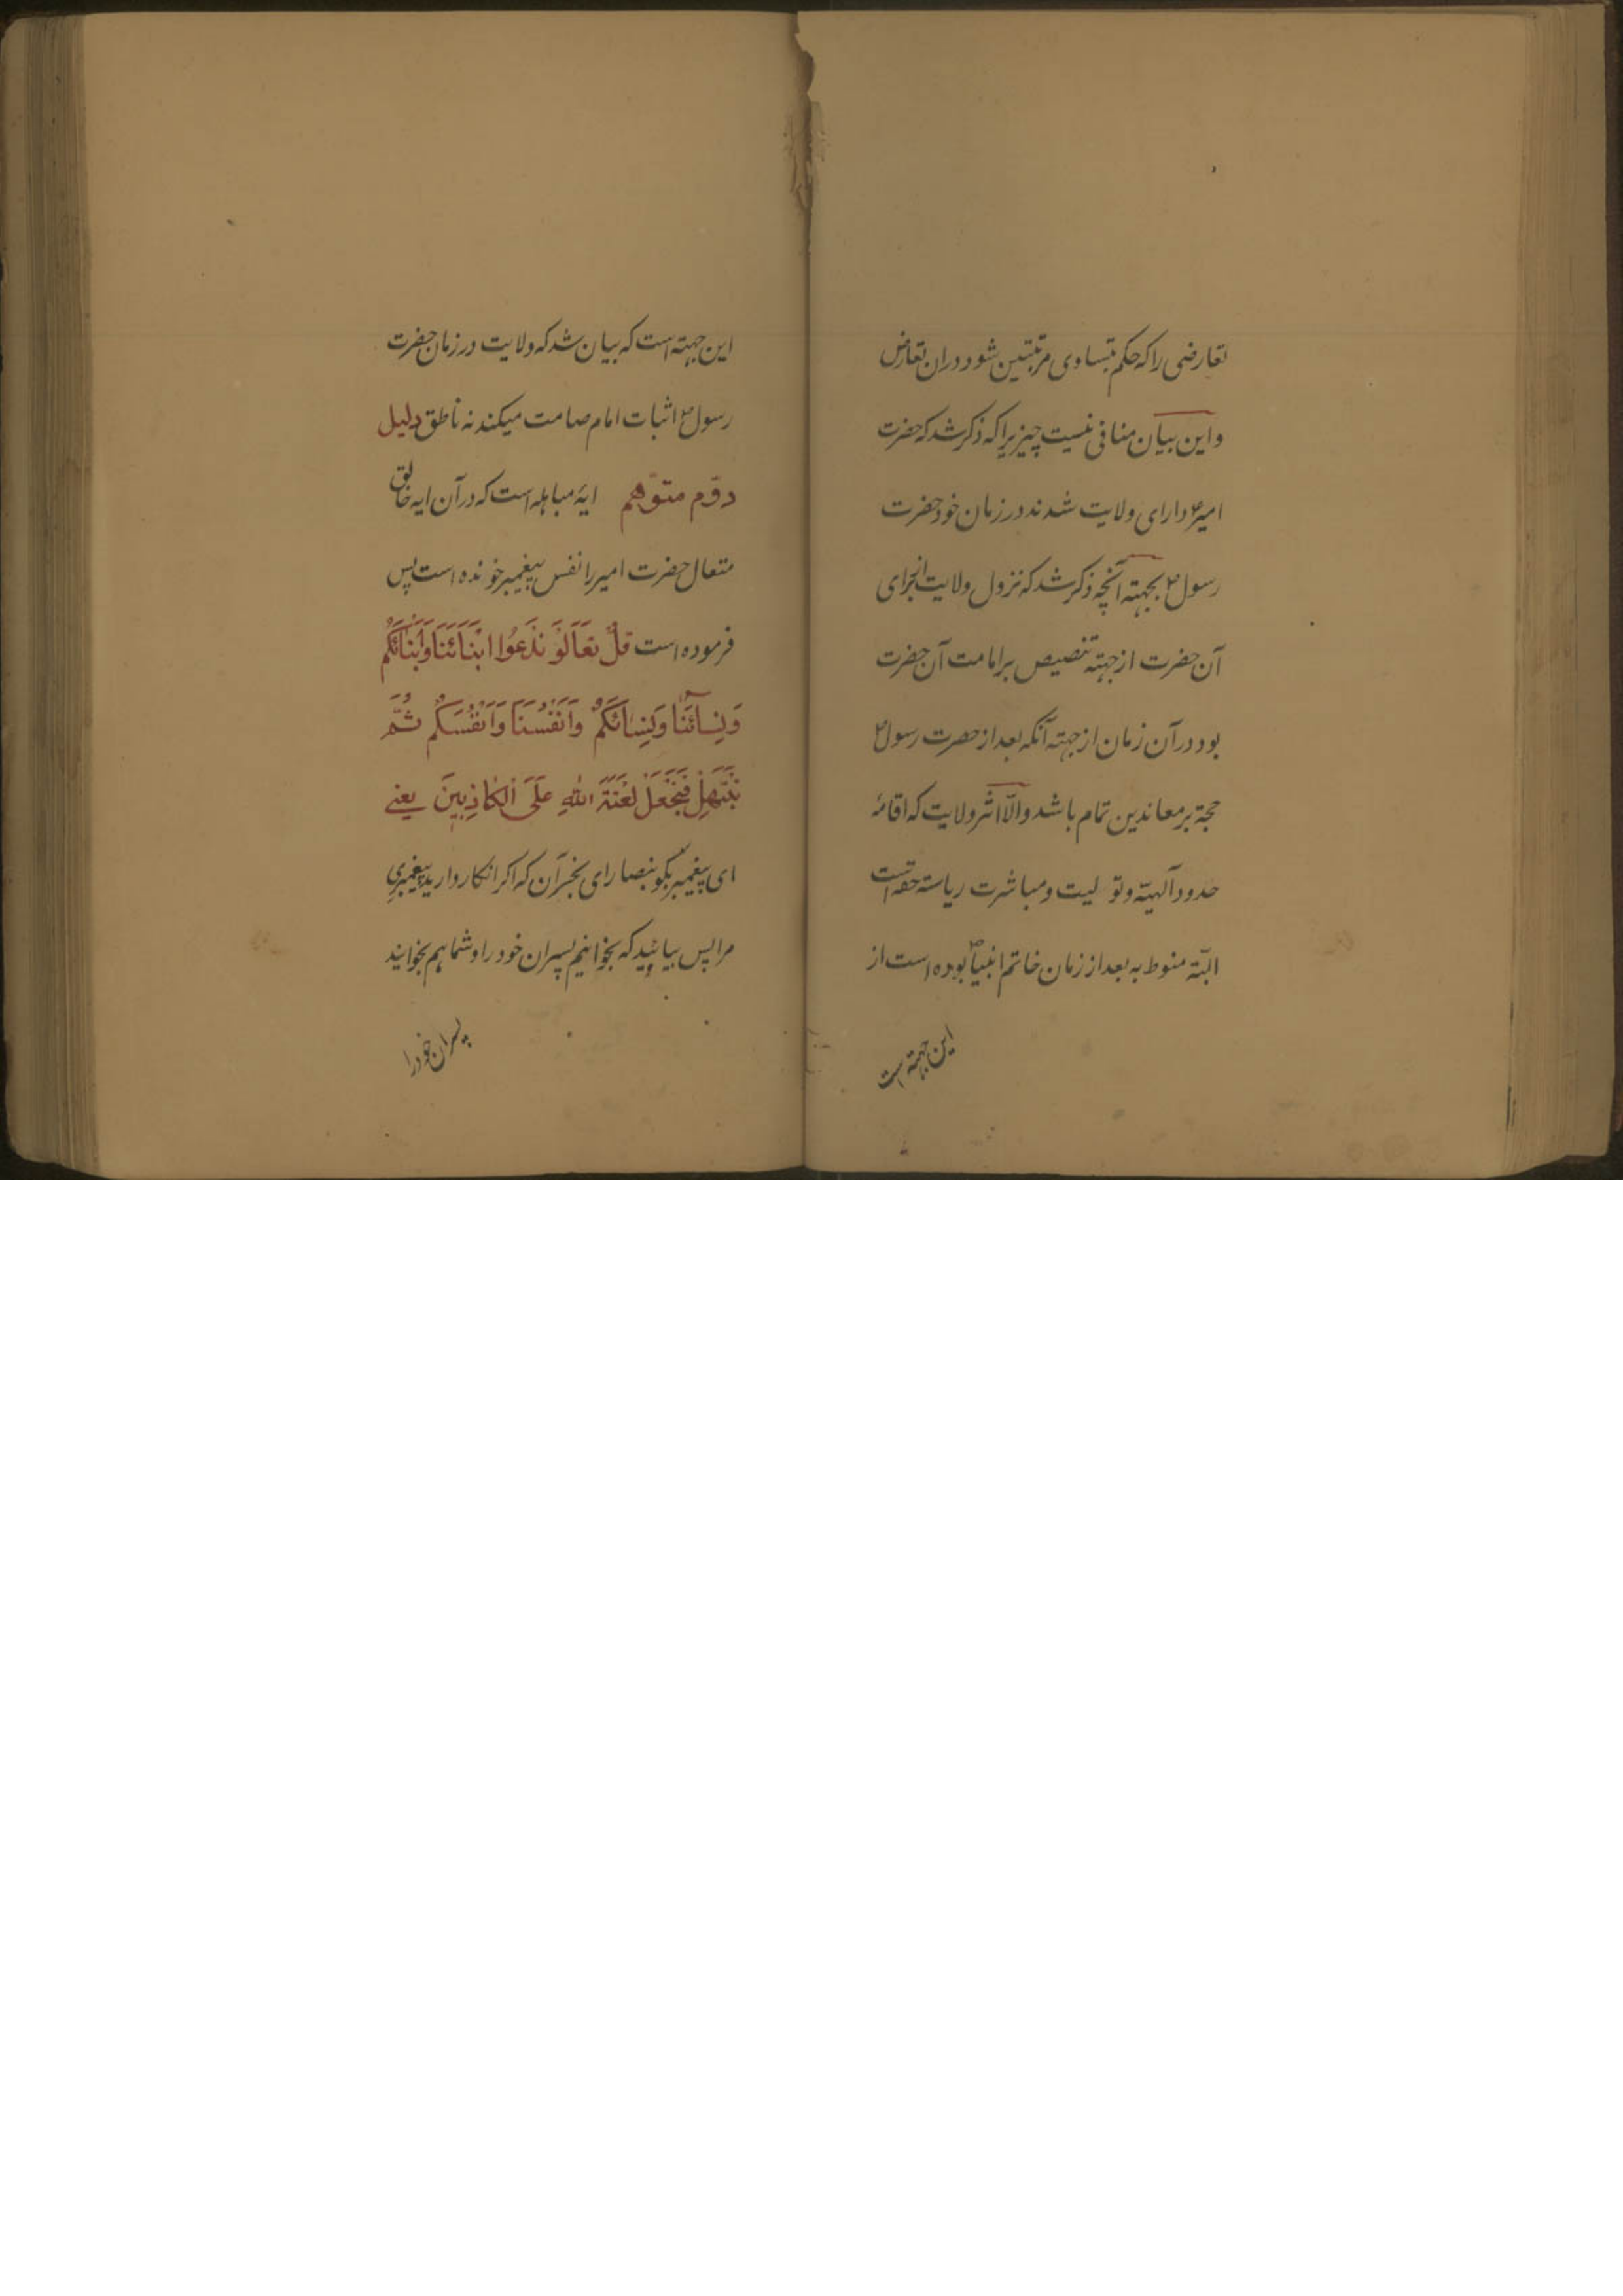 تعارضی را که حکم بتساوی مرتبتین شود در ان تعارض
و این بیان منافی نیست چیزیرا که ذکر شد که حضرت
امیر۴ دارای ولایت شدند در زمان خود حضرت
رسول۴ بجهته آنچه ذکر شد که نزول ولایت از برای
آن حضرت از جهته تنصیص بر امامت آن حضرت
بود در آن زمان از جهته آنکه بعد از حضرت رسول۴
حجة بر معاندین تمام باشد و الّا اثر ولایت که اقامهٔ
حدود آلهیّه و تولیت و مباشرت ریاسته حقه است
البتّه منوط به بعد از زمان خاتم انبیاص بوده است از
این جهته است
این جهته است که بیان شد که ولایت در زمان حضرت
رسول۴ اثبات امام صامت میکند نه ناطق دلیل
دوّم متوّهم ایهٔ مباهله است که در آن ایه خالق
متعال حضرت امیر را نفس پیغمبر خونده است پس
فرموده است قُلْ تَعَالَوْ نَدْعُوا ابْنَائَنَا وَاَبْنَائَكُمْ
وَنِسآئَنَا وَنِسائَكُمْ وَاَنْفُسَنَا وَاَنْفُسَكُمْ ثُمَّ
نَبْتَهِلْ فَنَجْعَلْ لَعْنَةَ اللهِ عَلَى الْكاذِبِينَ یعنے
ای پیغمبر بگو بنصارای نجران که اکر انکار دارید پیغمبریِ
مرا پس بیائید که بخوانیم پسران خود را و شما هم بخوانید
پسران خود را